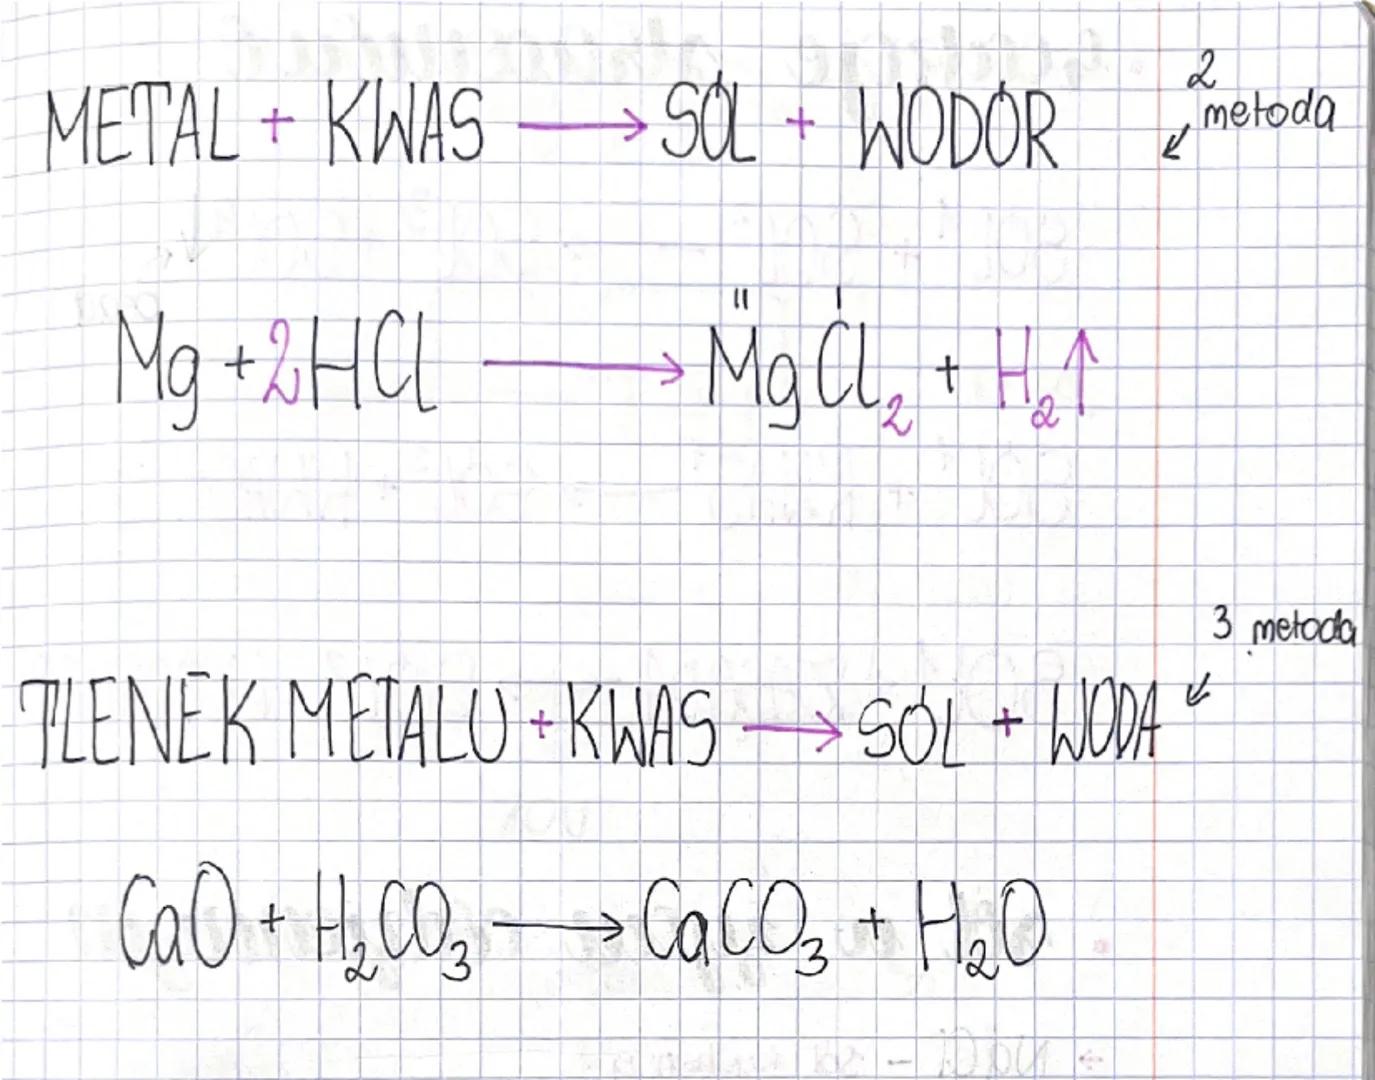 METAL + KWAS → SÓL + WODÓR
2
↙ metoda
II I
Mg + 2HCl → MgCl₂ + H₂↑
3 metoda
TLENEK METALU + KWAS → SÓL + WODA ↙
CaO + H₂CO₃ → CaCO₃ + H₂O